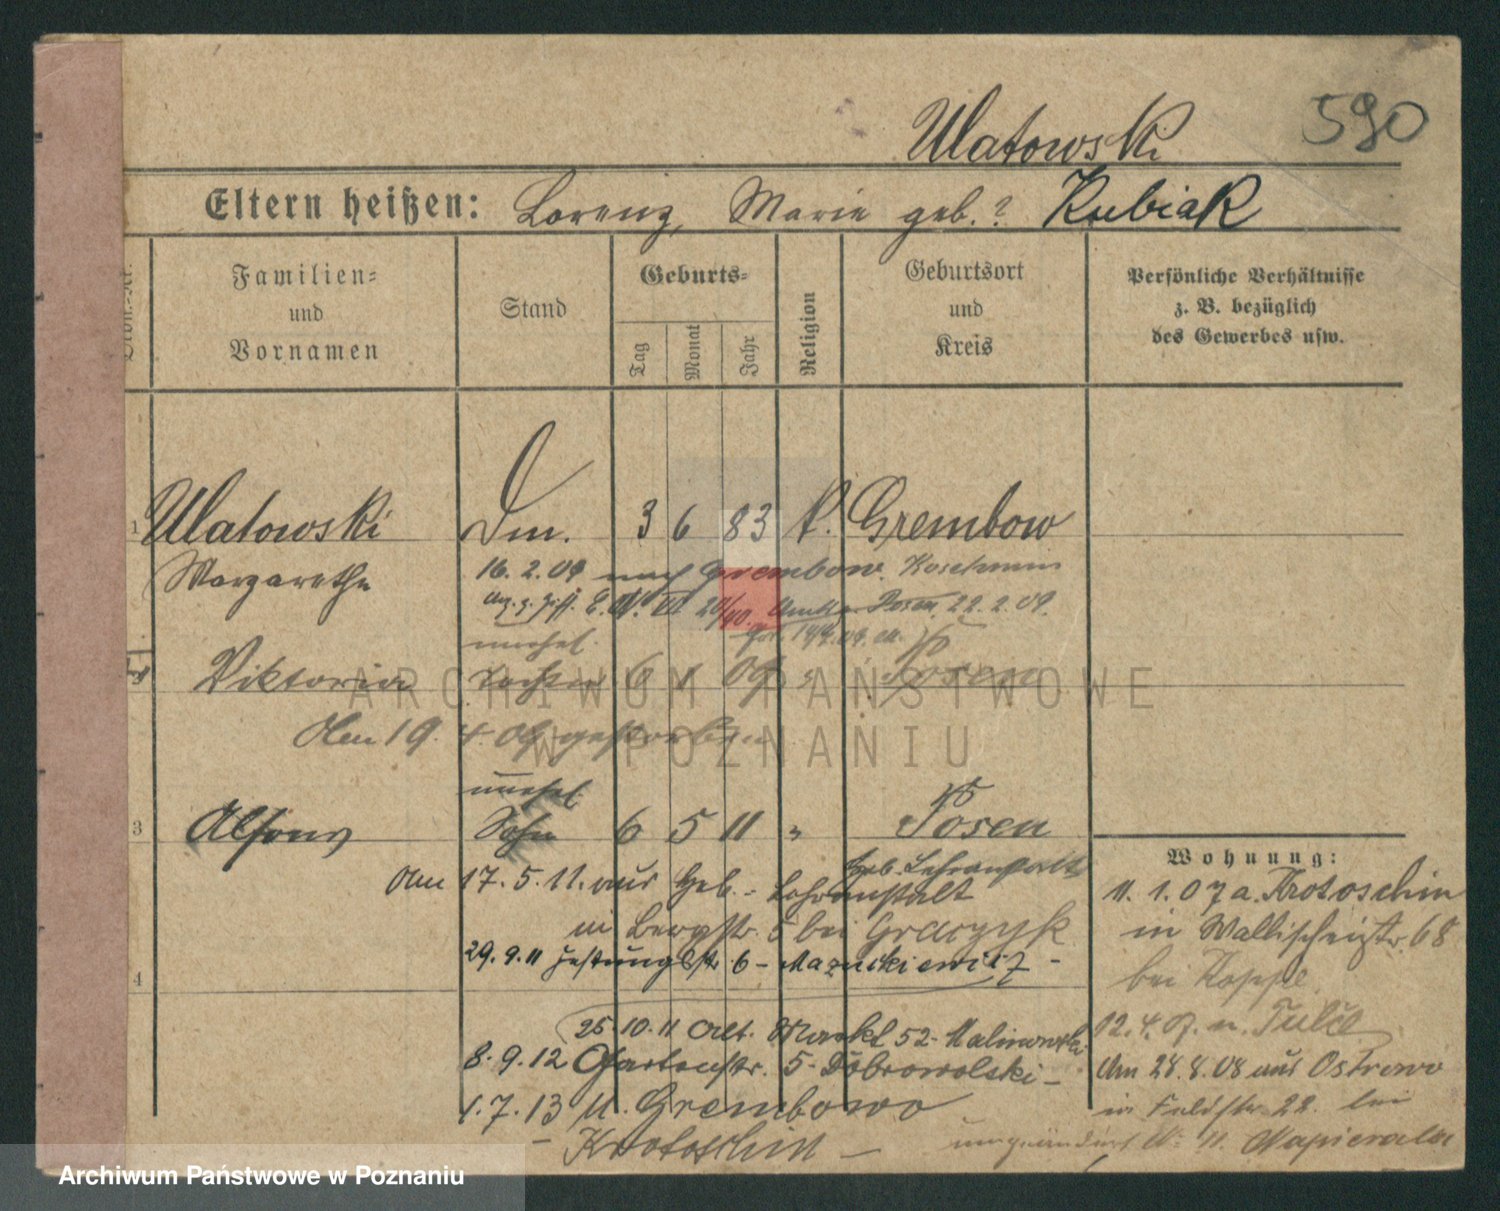 590
Ulatowski
Eltern heißen: Lorenz, Marie geb. ? Kubiak
Familien-
und
Vornamen
Stand
Geburts-
Tag
Monat
Jahr
Religion
Geburtsort
und
Kreis
Persönliche Verhältnisse
z. B. bezüglich
des Gewerbes usw.
1 Ulatowski Dm. 3 6 83 k. Grembow
Margarethe 16. 2. 09 nach Grembow. Koschmin
Posen, 22. 2. 09.
unehel.
Viktoria Tochter 6 1 09 Posen
Am 19. 4. 09 gestorben
unehel.
3 Alfons Sohn 6 5 11 " Posen
Geb. Lehranstalt
Am 17. 5. 11. aus Geb.- Lehranstalt
in Bergstr. 5 bei Graczyk
29. 9. 11 Festungsstr. 6 -
4
25. 10. 11 Alt. Markt 52 - Malinowski
8. 9. 12 Gartenstr. 5 - Dobrowolski -
1. 7. 13 n. Grembowo
- Krotoschin -
Wohnung:
11. 1. 07 a. Krotoschin
in Wallischeistr. 68
bei Koppe.
12. 4. 07. n.
Am 28. 8. 08 aus Ostrowo
in Feldstr. 22. bei
Napierala
ARCHIWUM PAŃSTWOWE
W POZNANIU
Archiwum Państwowe w Poznaniu